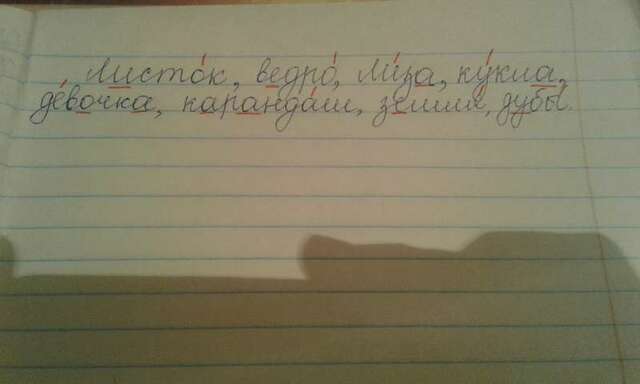 Листо́к, ведро́, Ли́за, ку́кла,
де́вочка, каранда́ш, земля, дубы́.